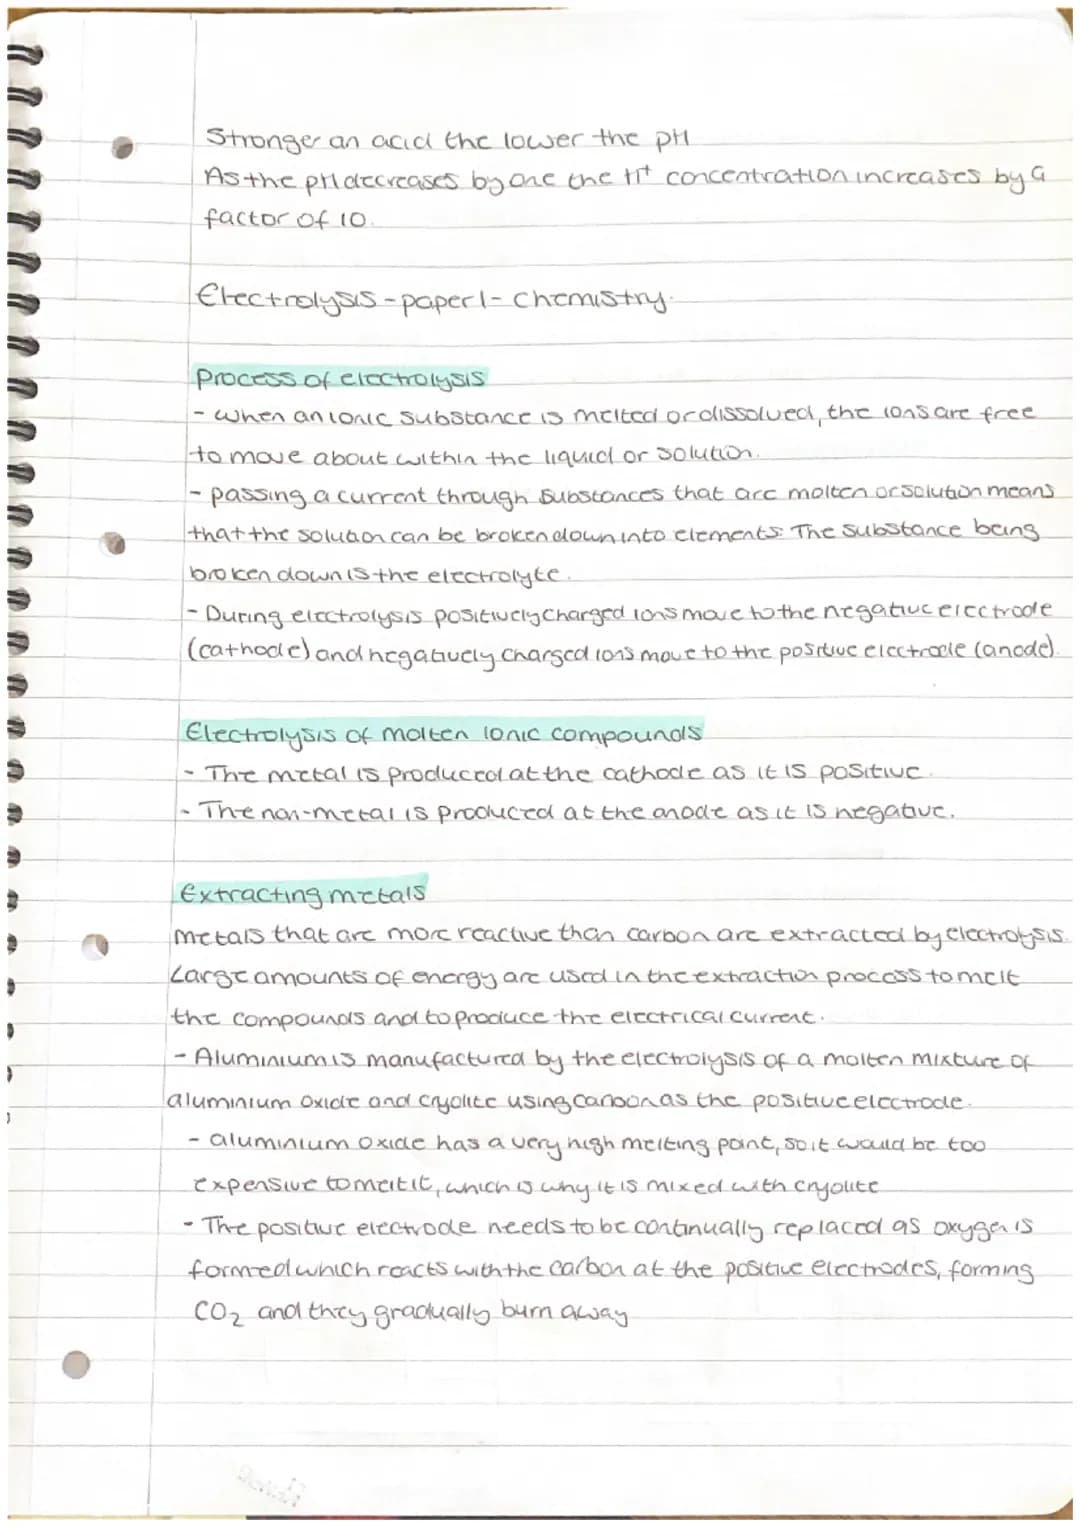 Stronger an acid the lower the pH
As the pH decreases by one the H+ concentration increases by a
factor of 10.
Electrolysis - paper 1 - chemistry.
Process of electrolysis
- when an ionic substance is melted or dissolved, the ions are free
to move about within the liquid or solution.
- passing a current through substances that are molten or solution means
that the solution can be broken down into elements. The substance being
broken down is the electrolyte.
- During electrolysis positively charged ions move to the negative electrode
(cathode) and negatively charged ions move to the positive electrode (anode).
Electrolysis of molten ionic compounds
- The metal is produced at the cathode as it is positive.
- The non-metal is produced at the anode as it is negative.
Extracting metals
metals that are more reactive than carbon are extracted by electrolysis.
Large amounts of energy are used in the extraction process to melt
the compounds and to produce the electrical current.
- Aluminium is manufactured by the electrolysis of a molten mixture of
aluminium oxide and cryolite using carbon as the positive electrode.
- aluminium oxide has a very high melting point, so it would be too
expensive to melt it, which is why it is mixed with cryolite
- The positive electrode needs to be continually replaced as oxygen is
formed which reacts with the carbon at the positive electrodes, forming
CO₂ and they gradually burn away